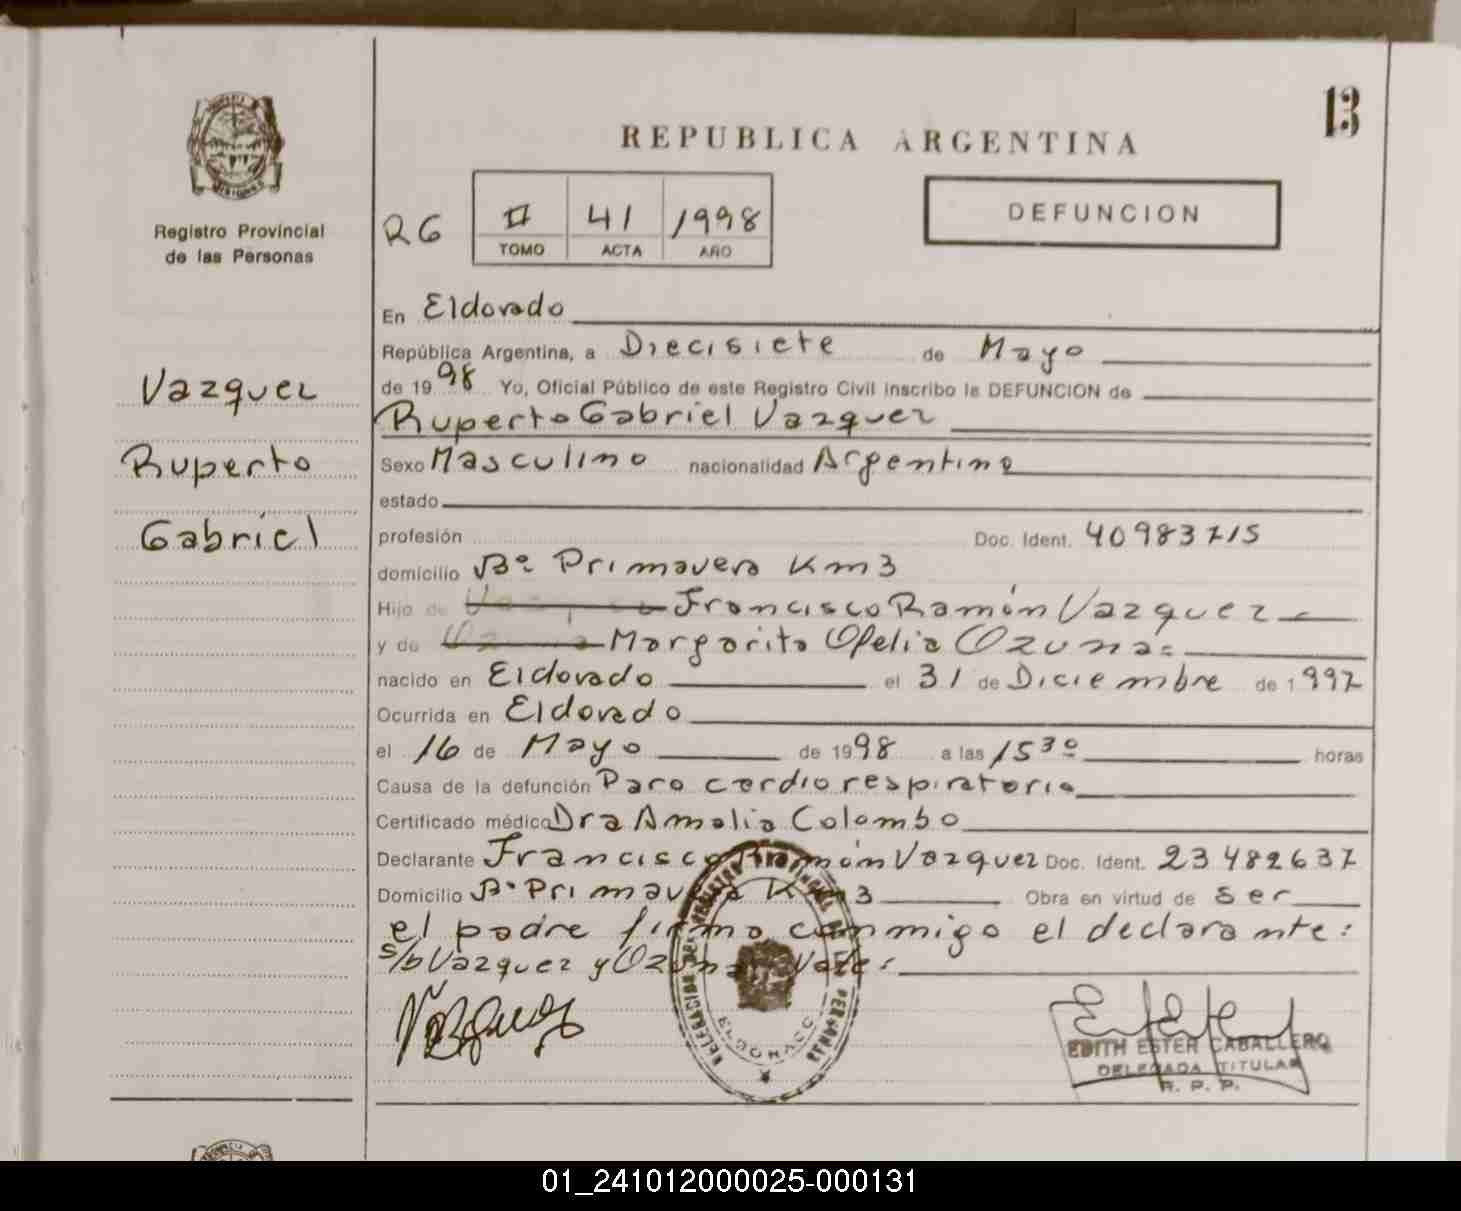 13
REPUBLICA ARGENTINA
DEFUNCION
Registro Provincial
de las Personas
RG II 41 1998
TOMO ACTA AÑO
En Eldorado
República Argentina, a Diecisiete de Mayo
de 1998 Yo, Oficial Público de este Registro Civil inscribo la DEFUNCION de
Vazquez
Ruperto Gabriel Vazquez
Ruperto
Sexo Masculino nacionalidad Argentino
estado
Gabriel
profesión Doc. Ident. 40983715
domicilio Bº Primavera Km3
Hijo de Francisco Ramón Vazquez
y de Margarita Ofelia Ozuna=
nacido en Eldorado el 31 de Diciembre de 1997
Ocurrida en Eldorado
el 16 de Mayo de 1998 a las 15 30 horas
Causa de la defunción Paro cardiorespiratorio
Certificado médico Dra Amalia Colombo
Declarante Francisco Ramón Vazquez Doc. Ident. 23482637
Domicilio Bº Primavera Km3 Obra en virtud de ser
el padre firma conmigo el declarante:
s/b Vazquez y Ozuna Vale:
Vazquez
ELDORADO
EDITH ESTER CABALLERO
DELEGADA TITULAR
R. P. P.
01_241012000025-000131